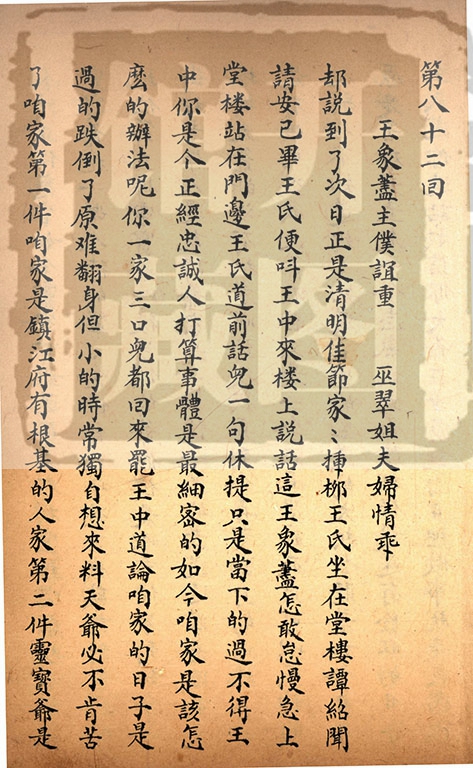 第八十二回
王象藎主僕誼重　巫翠姐夫婦情乖
却說到了次日正是清明佳節家〻揷柳王氏坐在堂樓譚紹聞
請安已畢王氏便呌王中來楼上說話這王象藎怎敢怠慢急上
堂楼站在門邊王氏道前話兒一句休提只是當下的過不得王
中你是个正經忠誠人打算事體是最細密的如今咱家是該怎
麽的辦法呢你一家三口兒都回來罷王中道論咱家的日子是
過的跌倒了原难翻身但小的時常獨自想來料天爺必不肯苦
了咱家第一件咱家是鎮江府有根基的人家第二件靈寶爺是